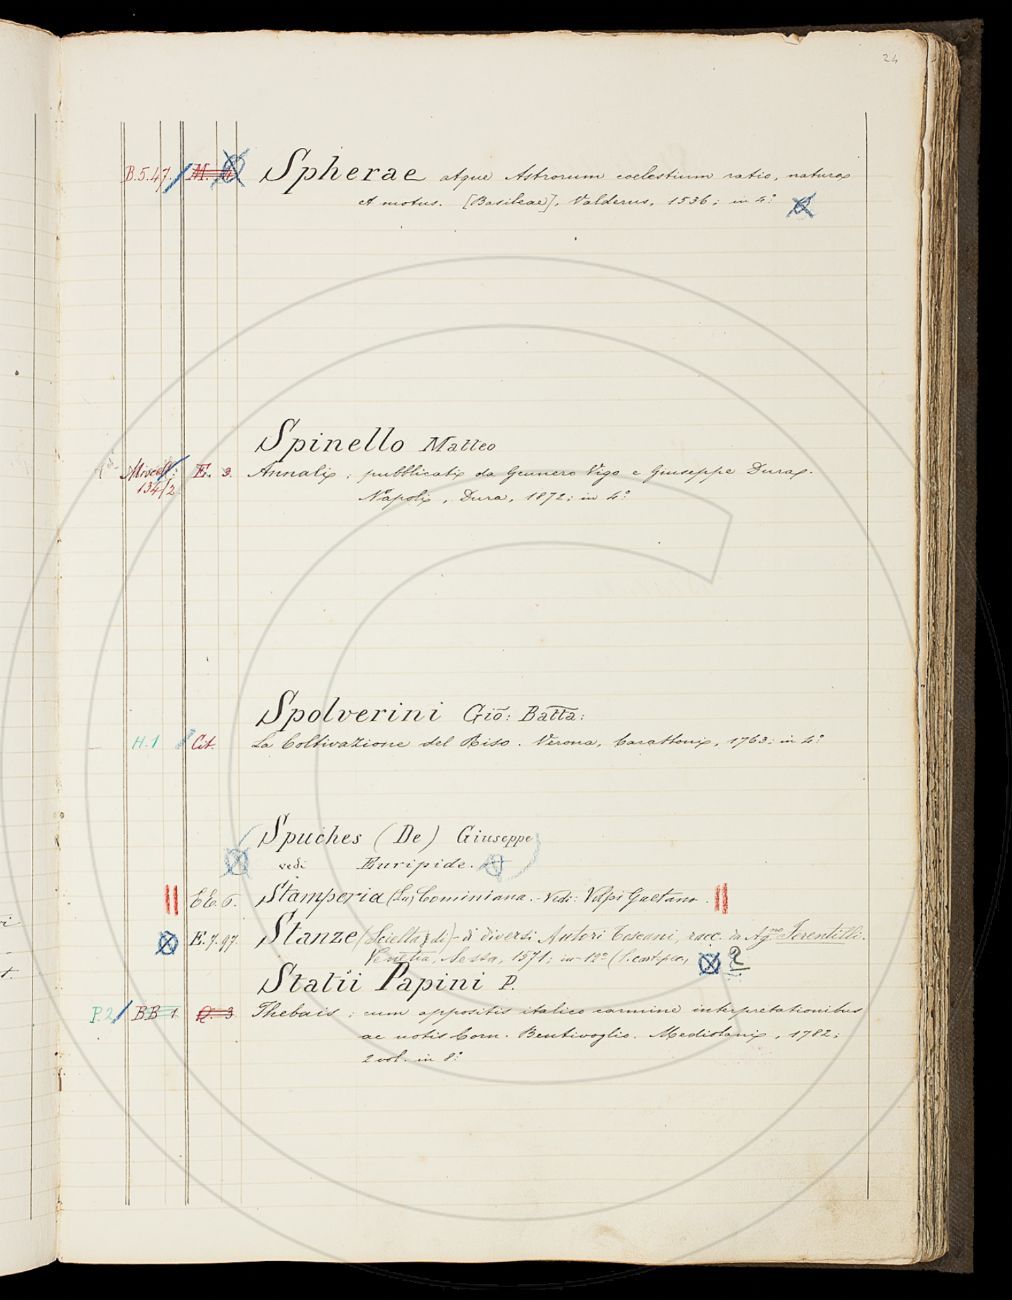 24
B.5.47. Spherae atque Astrorum coelestium ratio, natura
et motus. [Basileae], Valderus, 1536; in 4.°
Spinello Matteo
Miscell: E. 3. Annali; pubblicati da Gennero Vigo e Giuseppe Dura.
134/2 Napoli, Dura, 1872; in 4.°
Spolverini Gio: Batta:
H.1 Cit. La Coltivazione del Riso. Verona, Carattoni, 1763; in 4.°
Spuches (De) Giuseppe
vedi Euripide.
EE. 6. Stamperia (La) Cominiana. - Vedi: Volpi Gaetano.
E.7.97. Stanze (Scielta di) - di diversi Autori Toscani, racc. da Ag.no Ferentilli.
Venetia, Sessa, 1571; in 12.° 2
Statii Papini P.
P.2 BB 1 Q. 3 Thebais; cum appositis italico carmine interpretationibus
ac notis Corn. Bentivoglio. Mediolani, 1782;
2 vol. in 8.°